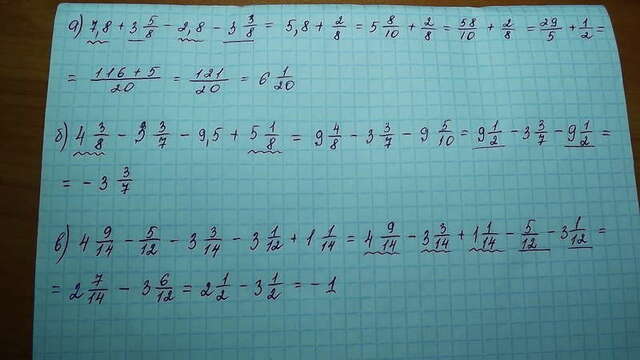 а) 7,8 + 3 5/8 - 2,8 - 3 3/8 = 5,8 + 2/8 = 5 8/10 + 2/8 = 58/10 + 2/8 = 29/5 + 1/2 =
= 116 + 5/20 = 121/20 = 6 1/20
б) 4 3/8 - 3 3/7 - 9,5 + 5 1/8 = 9 4/8 - 3 3/7 - 9 5/10 = 9 1/2 - 3 3/7 - 9 1/2 =
= - 3 3/7
в) 4 9/14 - 5/12 - 3 3/14 - 3 1/12 + 1 1/14 = 4 9/14 - 3 3/14 + 1 1/14 - 5/12 - 3 1/12 =
= 2 7/14 - 3 6/12 = 2 1/2 - 3 1/2 = - 1